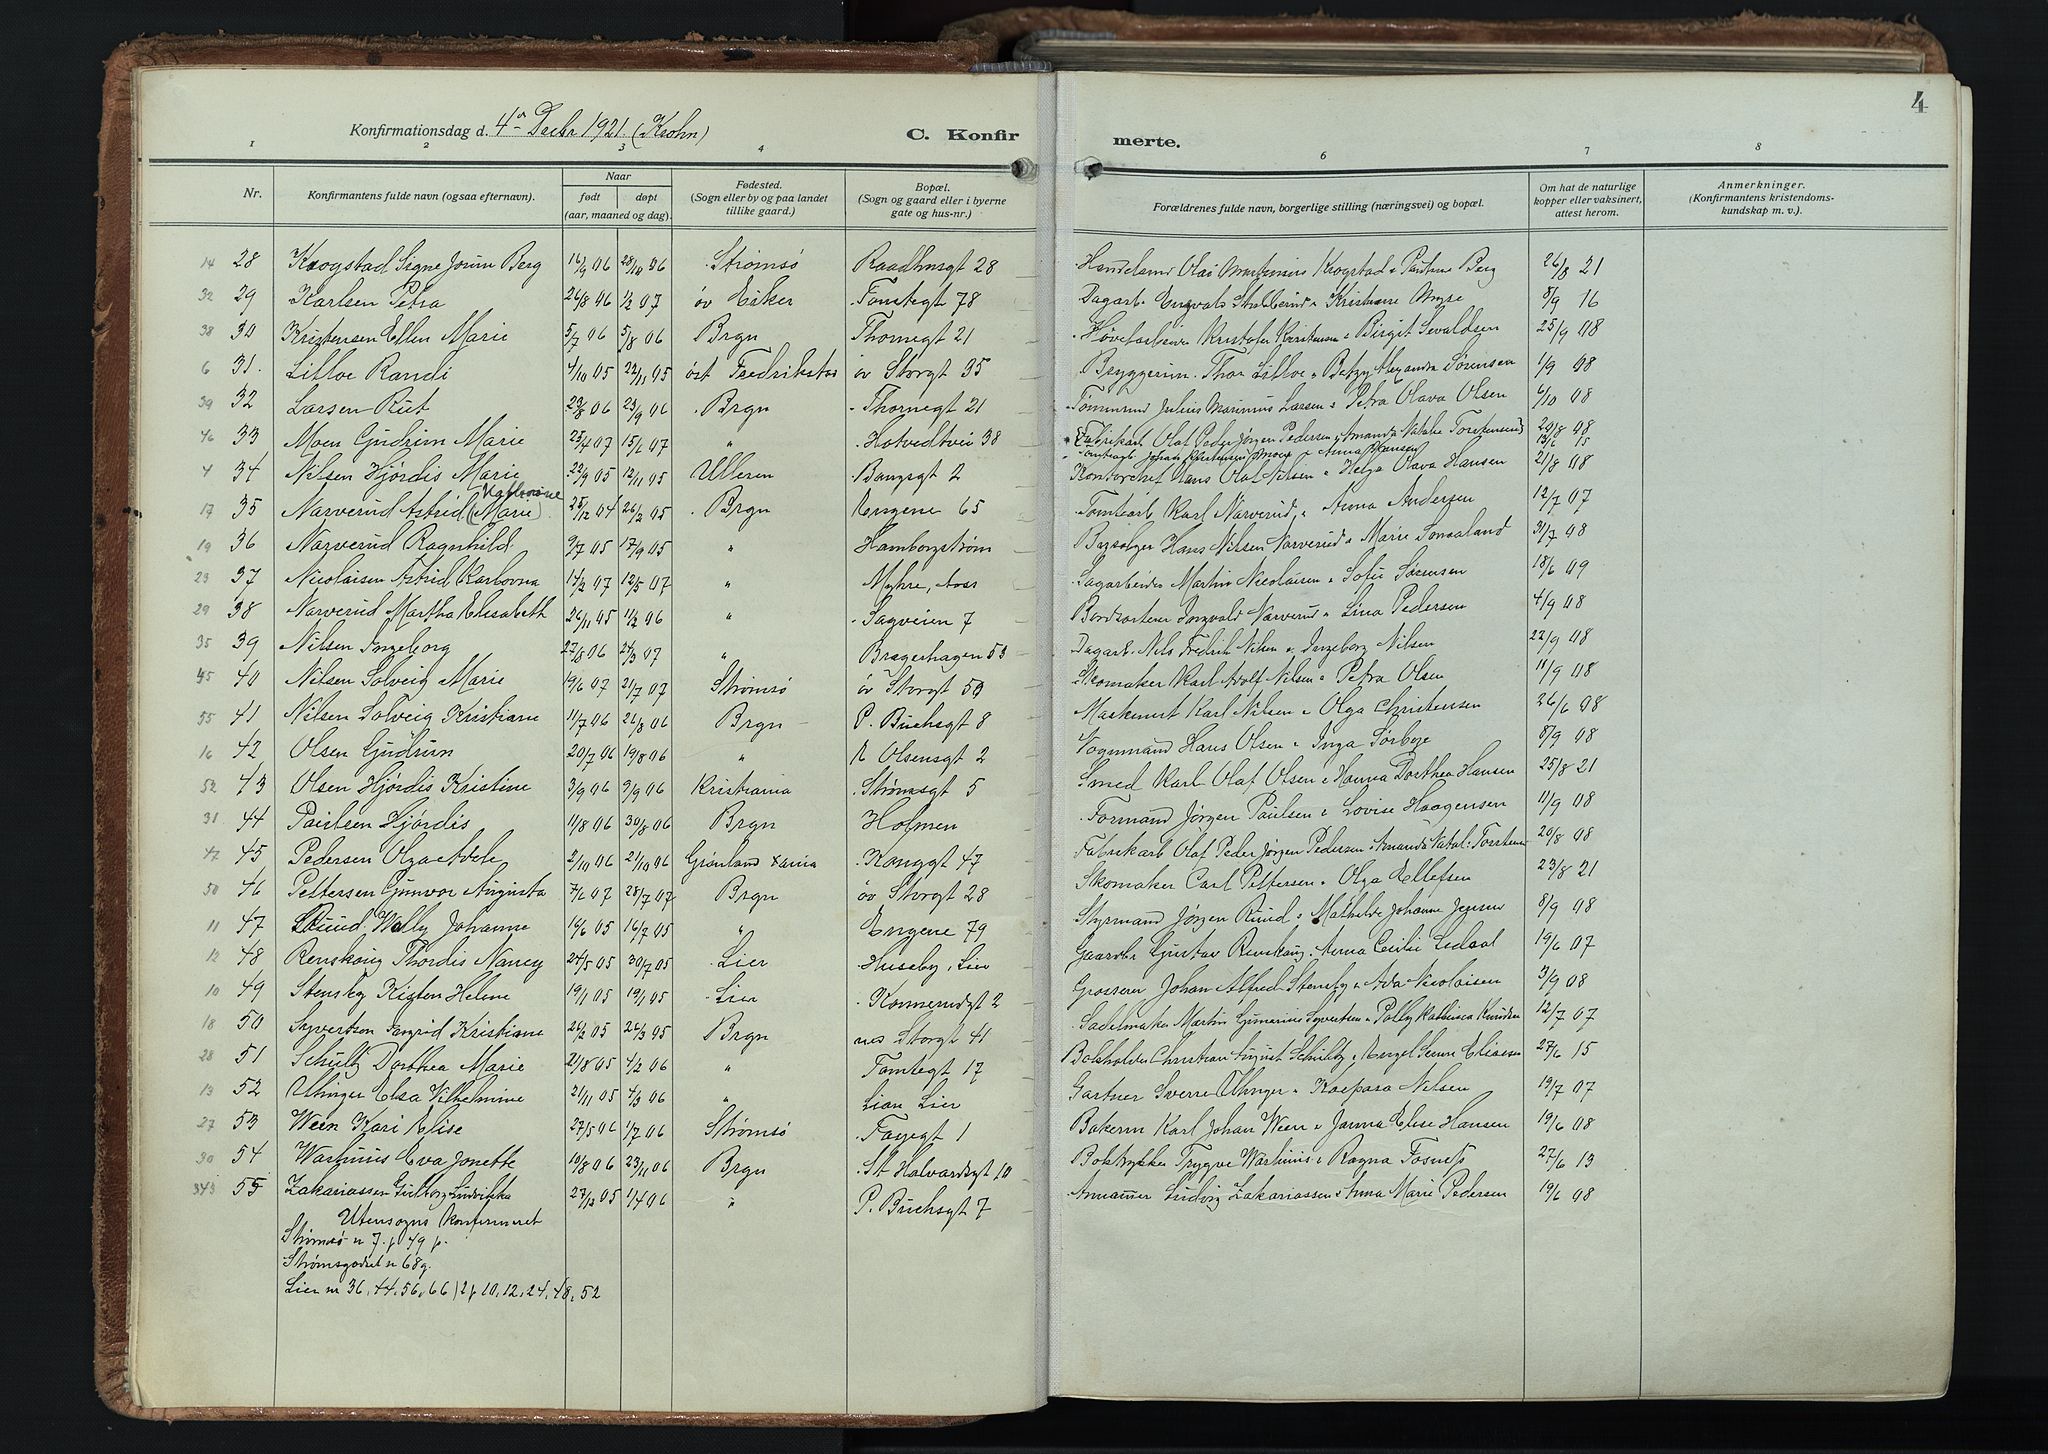 4
Konfirmationsdag d. 4de Decbr 1921. (Krohn)
C. Konfirmerte.
1 2 3 4 6 7 8
Nr. Konfirmantens fulde navn (ogsaa efternavn). Naar født døpt (aar, maaned og dag). Fødested. (Sogn eller by og paa landet tillike gaard.) Bopæl. (Sogn og gaard eller i byerne gate og hus-nr.) Forældrenes fulde navn, borgerlige stilling (næringsvei) og bopæl. Om hat de naturlige kopper eller vaksinert, attest herom. Anmerkninger. (Konfirmantens kristendomskundskap m. v.).
14 28 Krogstad Signe Jorun Berg 16/9 06 28/10 06 Strømsø Raadhusgt 28 Handelsmd Olai Martinius Krogstad o Pauline Berg 26/8 21
32 29 Karlsen Petra 26/8 06 1/2 07 øv Eiker Tomtegt 78 Dagarb. Engvald Stubberud o Kristiane Myre 8/9 16
38 30 Kristensen Ellen Marie 5/7 06 5/8 06 Brgn Thornegt 21 Høvlarbeider Kristofer Kristensen o Birgit Sevaldsen 25/9 08
6 31. Lilloe Randi 4/10 05 22/11 05 øst Fredrikstad øv Storgt 35 Bryggerim. Thor Lilloe o Betzy Alexandra Sørensen 1/9 08
39 32 Larsen Rut 23/8 06 23/9 06 Brgn Thornegt 21 Tømmermd Julius Marinius Larsen o Petra Olava Olsen 6/10 08
46 33 Moen Gudrun Marie 25/4 07 15/6 07 " Hotvedtvei 38 Fabrikarb. Olaf Peder Jørgen Pedersen o Amanda Natalie Torstensen 20/8 08
Tomtearb Johan Kristensen Moen o Anna Hansen 13/6 15
4 34 Nilsen Hjørdis Marie 22/9 05 12/11 05 Ulleren Bangsgt 2 Kontorchef Hans Olaf Nilsen o Helga Olava Hansen 21/8 08
17 35 Narverud Astrid (Marie) Kathrine 25/12 04 26/2 05 Brgn Engene 65 Tomtearb Karl Narverud o Anna Andersen 12/7 07
19 36 Narverud Ragnhild 9/7 05 17/9 05 " Hamborgstrøm Bysælger Hans Nilsen Narverud o Marie Sonaaland 31/7 08
23 37 Nicolaisen Astrid Karlovna 14/2 07 12/5 07 " Myhre, Aass Sagarbeider Martin Nicolaisen o Sofie Sørensen 18/6 09
29 38 Narverud Martha Elisabeth 26/11 05 11/2 06 " Sagveien 7 Bordsorterer Ingvald Narverud o Lina Pedersen 4/9 08
35 39 Nilsen Ingeborg 27/8 06 24/3 07 " Bragerhagen 53 Dagarb. Nils Fredrik Nilsen o Ingeborg Nilsen 22/9 08
45 40 Nilsen Solveig Marie 19/6 07 21/7 07 Strømsø øv Storgt 59 Skomaker Karl Adolf Nilsen o Petra Olsen 11/9 08
55 41 Nilsen Solveig Kristiane 11/7 06 26/8 06 Brgn P. Buchsgt 8 Maskinist Karl Nilsen o Olga Christensen 26/6 08
16 42 Olsen Gudrun 20/7 06 19/8 06 " A Olsensgt 2 Vognmand Hans Olsen o Inga Sørbye 8/9 08
52 43 Olsen Hjørdis Kristine 3/9 06 9/9 06 Kristiania Strømsgt 5 Smed Karl Olaf Olsen o Hanna Dorthea Hansen 25/8 21
31 44 Paulsen Hjørdis 11/8 06 30/8 06 Brgn Holmen Formand Jørgen Paulsen o Lovise Haagensen 11/9 08
47 45 Pedersen Olga Adele 2/10 06 21/10 06 Grønland Xania Konggt 47 Fabrikarb Olaf Peder Jørgen Pedersen o Amanda Natal: Torstensen 20/8 08
50 46 Pettersen Gunvor Augusta 7/6 07 28/7 07 Brgn øv Storgt 28 Skomaker Carl Pettersen o Olga Ellefsen 23/8 21
11 47 Ruud Wally Johanne 16/6 05 16/7 05 " Engene 79 Styrmand Jørgen Ruud o Mathilde Johanne Jensen 8/9 08
12 48 Renskoug Thordis Nancy 24/5 05 30/7 05 Lier Huseby, Lier Gaardbr Gustav Renskoug o Anna Cecilie Lidsaal 19/6 07
10 49 Stensby Kirsten Helene 19/1 05 19/1 05 Lier Konnerudgt 2 Grosserer Johan Alfred Stensby o Ada Nicolaisen 3/9 08
18 50 Syvertsen Ingrid Kristiane 26/2 05 26/3 05 Brgn nes Storgt 41 Sadelmaker Martin Gunarius Syvertsen o Polly Kathinca Knudsen 12/7 07
28 51 Schultz Dorthea Marie 21/8 05 4/2 06 " Tomtegt 17 Bokholder Christian August Schultz o Engel Semine Eliassen 27/6 15
13 52 Ullinger Elsa Vilhelmine 21/11 05 4/3 06 " Lian Lier Gartner Sverre Ullinger o Kaspara Nilsen 19/7 07
27 53 Ween Kari Elise 27/5 06 1/7 06 Strømsø Fayegt 1 Bakerm Karl Johan Ween o Janna Elise Hansen 19/6 08
30 54 Warhuus Eva Jonette 19/8 06 23/11 06 Brgn St Halvardsgt 10 Boktrykker Trygve Warhuus o Ragna Fosnæs 27/6 13
343 55 Zakariassen Guthorg Ludvikka 27/12 05 1/4 06 " P. Buchsgt 7 Annammer Ludvig Zakariassen o Anna Marie Pedersen 19/6 08
Utensogns konfirmeret
Strømsø n 7. p 49 p.
Strømsgodset n 68g.
Lier nr 36, 44, 56, 66) 2p 10, 12, 24, 48, 52